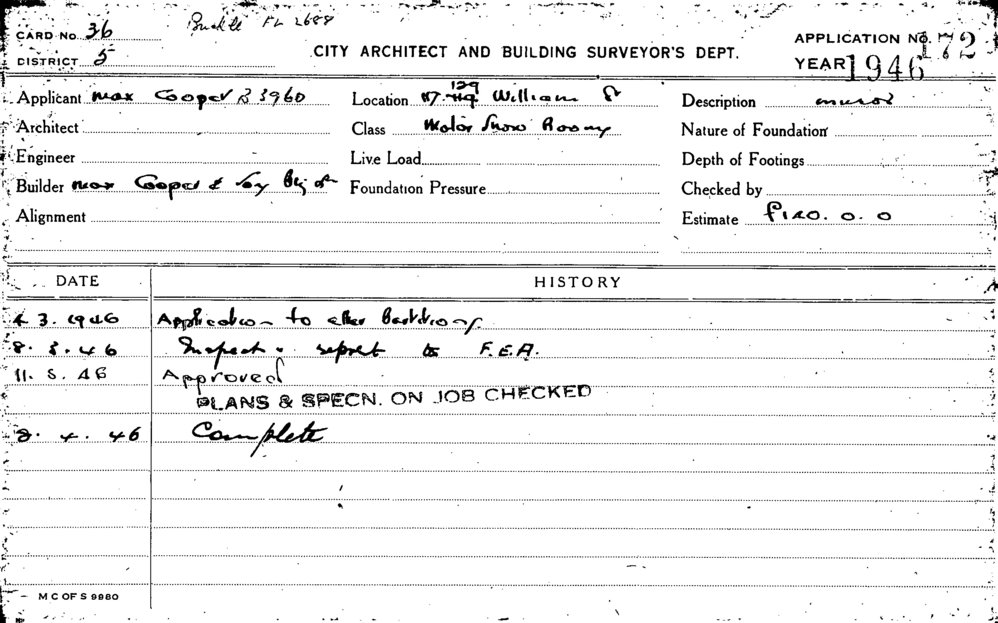 CARD No. 36
FL 2688
DISTRICT 5
CITY ARCHITECT AND BUILDING SURVEYOR'S DEPT.
APPLICATION No. 172
YEAR 1946
Applicant Max Cooper B 3960
Location 129 William St
Description minor
Architect
Class Motor Show Rooms
Nature of Foundation
Engineer
Live Load
Depth of Footings
Builder Max Cooper &
Foundation Pressure
Checked by
Alignment
Estimate
DATE HISTORY
4.3.1946 Application to alter Buildings
8.3.46 Inspect & report to F.E.A.
11.3.46 Approved
PLANS & SPECN. ON JOB CHECKED
8.4.46 Complete
M C OF S 9980